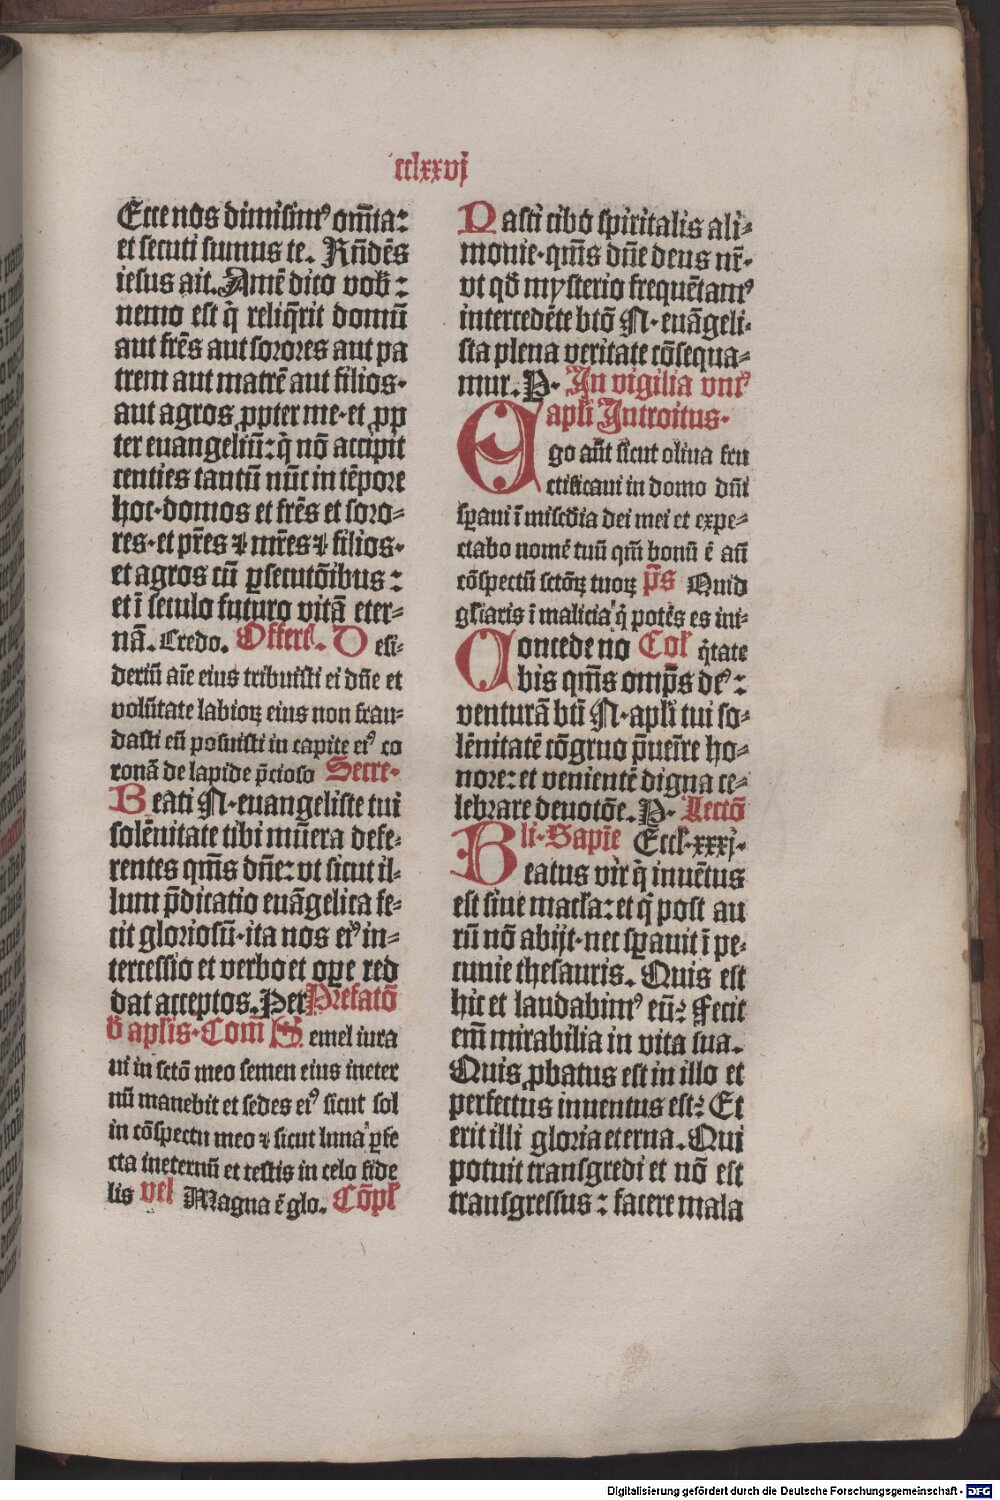 cclxxvj
Ecce nos dimisimꝰ om̄ia:
et secuti sumus te. Rn̄dēs
iesus ait. Amē dico vob̄ :
nemo est q̄ reliq̄rit domū
aut fr̄es aut sorores aut pa
trem aut matrē aut filios·
aut agros ꝓpter me·et ꝓp
ter euangeliū: q̄ nō accipit
centies tantū nūc in tēpore
hoc·domos et fr̄es et soro⸗
res·et pr̄es ⁊ mr̄es ⁊ filios·
et agros cū ꝑsecutōibus :
et ī seculo futuro vitā eter⸗
nā. Credo. Offert̄. Desi⸗
deriū aīe eius tribuisti ei dn̄e et
volūtate labioꝝ eius non frau⸗
dasti eū posuisti in capite eiꝰ co
ronā de lapide p̄cioso Secre·
Beati N·euangeliste tui
solēnitate tibi mūera defe⸗
rentes qm̄s dn̄e: vt sicut il⸗
lum p̄dicatio euāgelica fe⸗
cit gloriosū·ita nos eiꝰ in⸗
tercessio et verbo et oꝑe red
dat acceptos. Per Prefatō
d̄ apl̄is·Com̄ Semel iura
ui in sctō meo semen eius ineter
nū manebit et sedes eiꝰ sicut sol
in cōspectu meo ⁊ sicut luna ꝑfe
cta ineternū et testis in celo fide
lis vel Magna ē glo. Cōpl̄
Pasti cibo spiritalis ali⸗
monie·qm̄s dn̄e deus nr̄·
vt qd̄ mysterio frequētamꝰ
intercedēte btō N·euāgeli⸗
sta plena veritate cōsequa⸗
mur. P· In vigilia vniꝰ
apl̄i Introitus·
Ego aūt sicut oliua fru
ctificaui in domo dn̄i
sꝑaui ī mis̄dia dei mei et expe⸗
ctabo nomē tuū qm̄ bonū ē an̄
cōspectū sctōꝝ tuoꝝ p̄s Quid
gl̄iaris ī malicia q̄ potēs es ini⸗
Concede no Col̄ q̄tate
bis qm̄s omp̄s deꝰ :
venturā bti N·apl̄i tui so⸗
lēnitatē cōgruo p̄uen̄re ho⸗
nore: et venientē digna ce⸗
lebrare deuotōe. P· Lectō
li·Sapīe Eccl̄·xxxj·
Beatus vir q̄ inuētus
est sine macl̄a: et q̄ post au
rū nō abijt·nec sꝑauit ī pe⸗
cunie thesauris. Quis est
hic et laudabimꝰ eū? Fecit
em̄ mirabilia in vita sua.
Quis ꝓbatus est in illo et
perfectus inuentus est? Et
erit illi gloria eterna. Qui
potuit transgredi et nō est
transgressus : facere mala
Digitalisierung gefördert durch die Deutsche Forschungsgemeinschaft - DFG